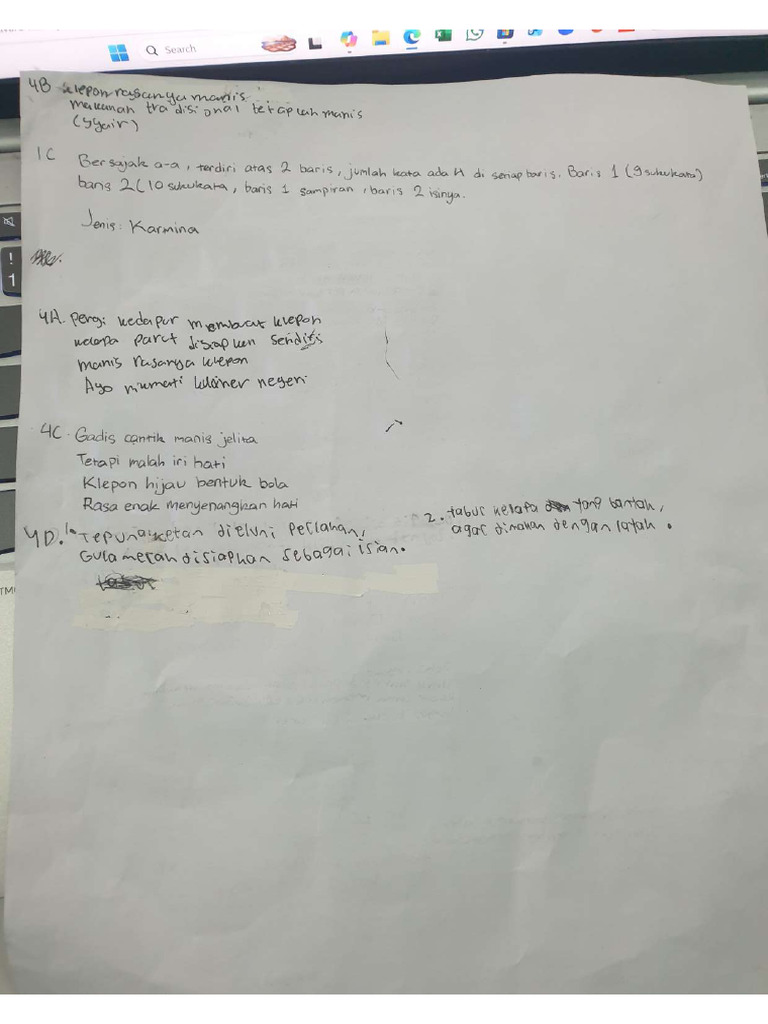 Search
4B klepon rasanya manis
makanan tradisional tetaplah manis
(syair)
1C Bersajak a-a, terdiri atas 2 baris, jumlah kata ada 4 di seriap baris. Baris 1 (9 sukukata)
baris 2 (10 sukukata, baris 1 sampiran, baris 2 isinya.
Jenis: Karmina
!
1
4A. Pergi kedapur membuat klepon
kelapa parut disiapkan sendiri
manis rasanya klepon
Ayo nikmati kuliner negeri
4C. Gadis cantik manis jelita
Tetapi malah iri hati
Klepon hijau bentuk bola
Rasa enak menyenangkan hati
4D. 1. Tepung ketan diuleni perlahan,
Gula merah disiapkan sebagai isian.
2. tabur kelapa
agar dimakan dengan